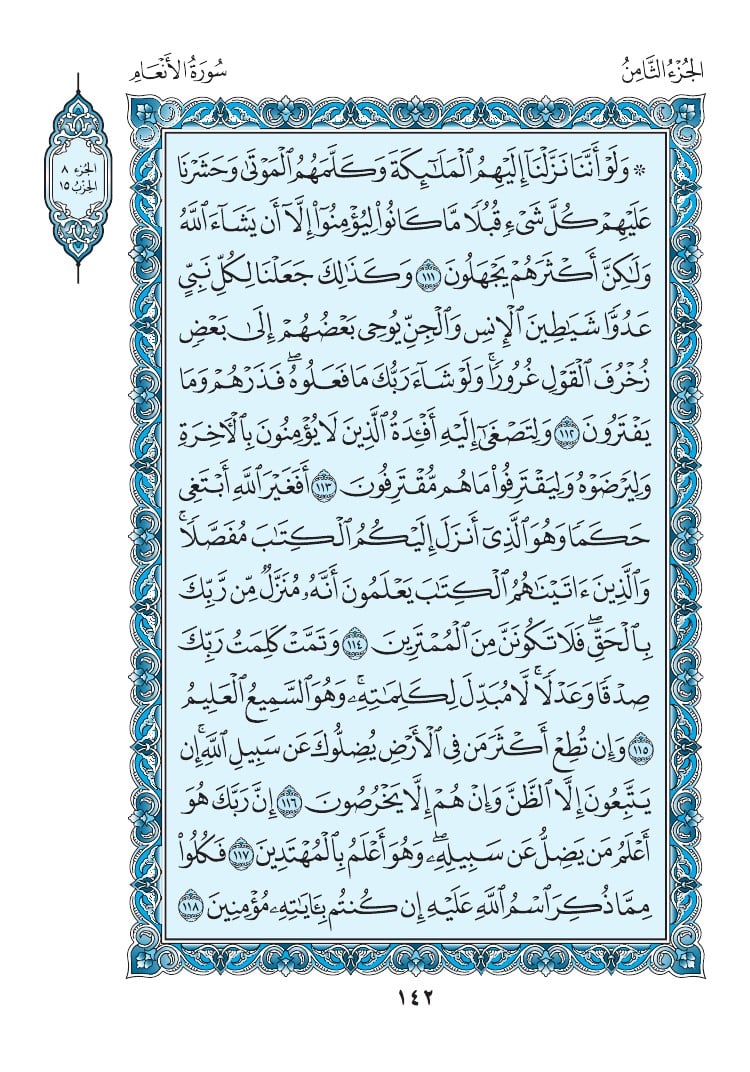 الجُزْءُ الثَّامِنُ
سُورَةُ الأَنْعَامِ
الجزء ٨
الحزب ١٥
* وَلَوْ أَنَّنَا نَزَّلْنَآ إِلَيْهِمُ ٱلْمَلَـٰٓئِكَةَ وَكَلَّمَهُمُ ٱلْمَوْتَىٰ وَحَشَرْنَا
عَلَيْهِمْ كُلَّ شَىْءٍ قُبُلًا مَّا كَانُوا۟ لِيُؤْمِنُوٓا۟ إِلَّآ أَن يَشَآءَ ٱللَّهُ
وَلَـٰكِنَّ أَكْثَرَهُمْ يَجْهَلُونَ ١١١ وَكَذَٰلِكَ جَعَلْنَا لِكُلِّ نَبِىٍّ
عَدُوًّا شَيَـٰطِينَ ٱلْإِنسِ وَٱلْجِنِّ يُوحِى بَعْضُهُمْ إِلَىٰ بَعْضٍ
زُخْرُفَ ٱلْقَوْلِ غُرُورًا ۚ وَلَوْ شَآءَ رَبُّكَ مَا فَعَلُوهُ ۖ فَذَرْهُمْ وَمَا
يَفْتَرُونَ ١١٢ وَلِتَصْغَىٰٓ إِلَيْهِ أَفْـِٔدَةُ ٱلَّذِينَ لَا يُؤْمِنُونَ بِٱلْـَٔاخِرَةِ
وَلِيَرْضَوْهُ وَلِيَقْتَرِفُوا۟ مَا هُم مُّقْتَرِفُونَ ١١٣ أَفَغَيْرَ ٱللَّهِ أَبْتَغِى
حَكَمًا وَهُوَ ٱلَّذِىٓ أَنزَلَ إِلَيْكُمُ ٱلْكِتَـٰبَ مُفَصَّلًا ۚ
وَٱلَّذِينَ ءَاتَيْنَـٰهُمُ ٱلْكِتَـٰبَ يَعْلَمُونَ أَنَّهُۥ مُنَزَّلٌ مِّن رَّبِّكَ
بِٱلْحَقِّ ۖ فَلَا تَكُونَنَّ مِنَ ٱلْمُمْتَرِينَ ١١٤ وَتَمَّتْ كَلِمَتُ رَبِّكَ
صِدْقًا وَعَدْلًا ۚ لَّا مُبَدِّلَ لِكَلِمَـٰتِهِۦ ۚ وَهُوَ ٱلسَّمِيعُ ٱلْعَلِيمُ
١١٥ وَإِن تُطِعْ أَكْثَرَ مَن فِى ٱلْأَرْضِ يُضِلُّوكَ عَن سَبِيلِ ٱللَّهِ ۚ إِن
يَتَّبِعُونَ إِلَّا ٱلظَّنَّ وَإِنْ هُمْ إِلَّا يَخْرُصُونَ ١١٦ إِنَّ رَبَّكَ هُوَ
أَعْلَمُ مَن يَضِلُّ عَن سَبِيلِهِۦ ۖ وَهُوَ أَعْلَمُ بِٱلْمُهْتَدِينَ ١١٧ فَكُلُوا۟
مِمَّا ذُكِرَ ٱسْمُ ٱللَّهِ عَلَيْهِ إِن كُنتُم بِـَٔايَـٰتِهِۦ مُؤْمِنِينَ ١١٨
١٤٢